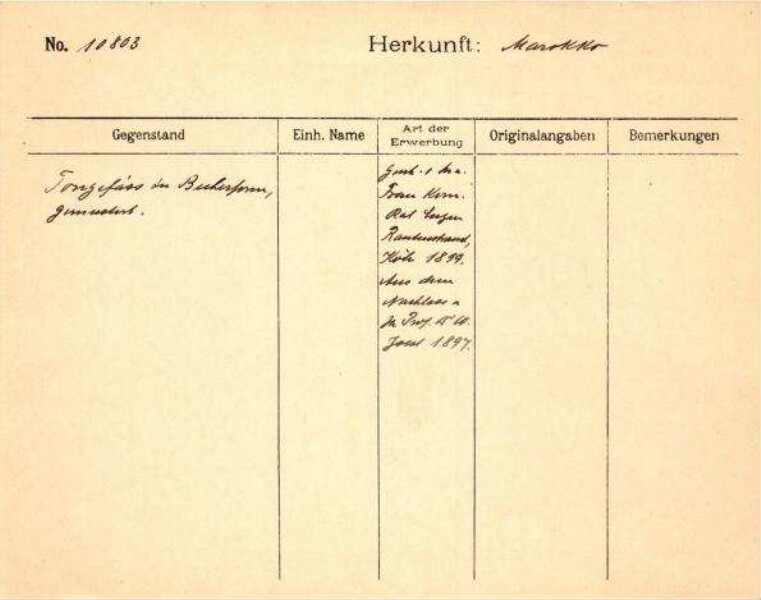 No. 10803 Herkunft: Marokko
Gegenstand Einh. Name Art der Erwerbung Originalangaben Bemerkungen
Tongefäss in Becherform,
gemustert.
Gesch. v.
Frau Kom.
Rat Eugen
Rautenstrauch,
Köln 1899.
Aus dem
Nachlass
Prof. Dr W.
Joest 1897.